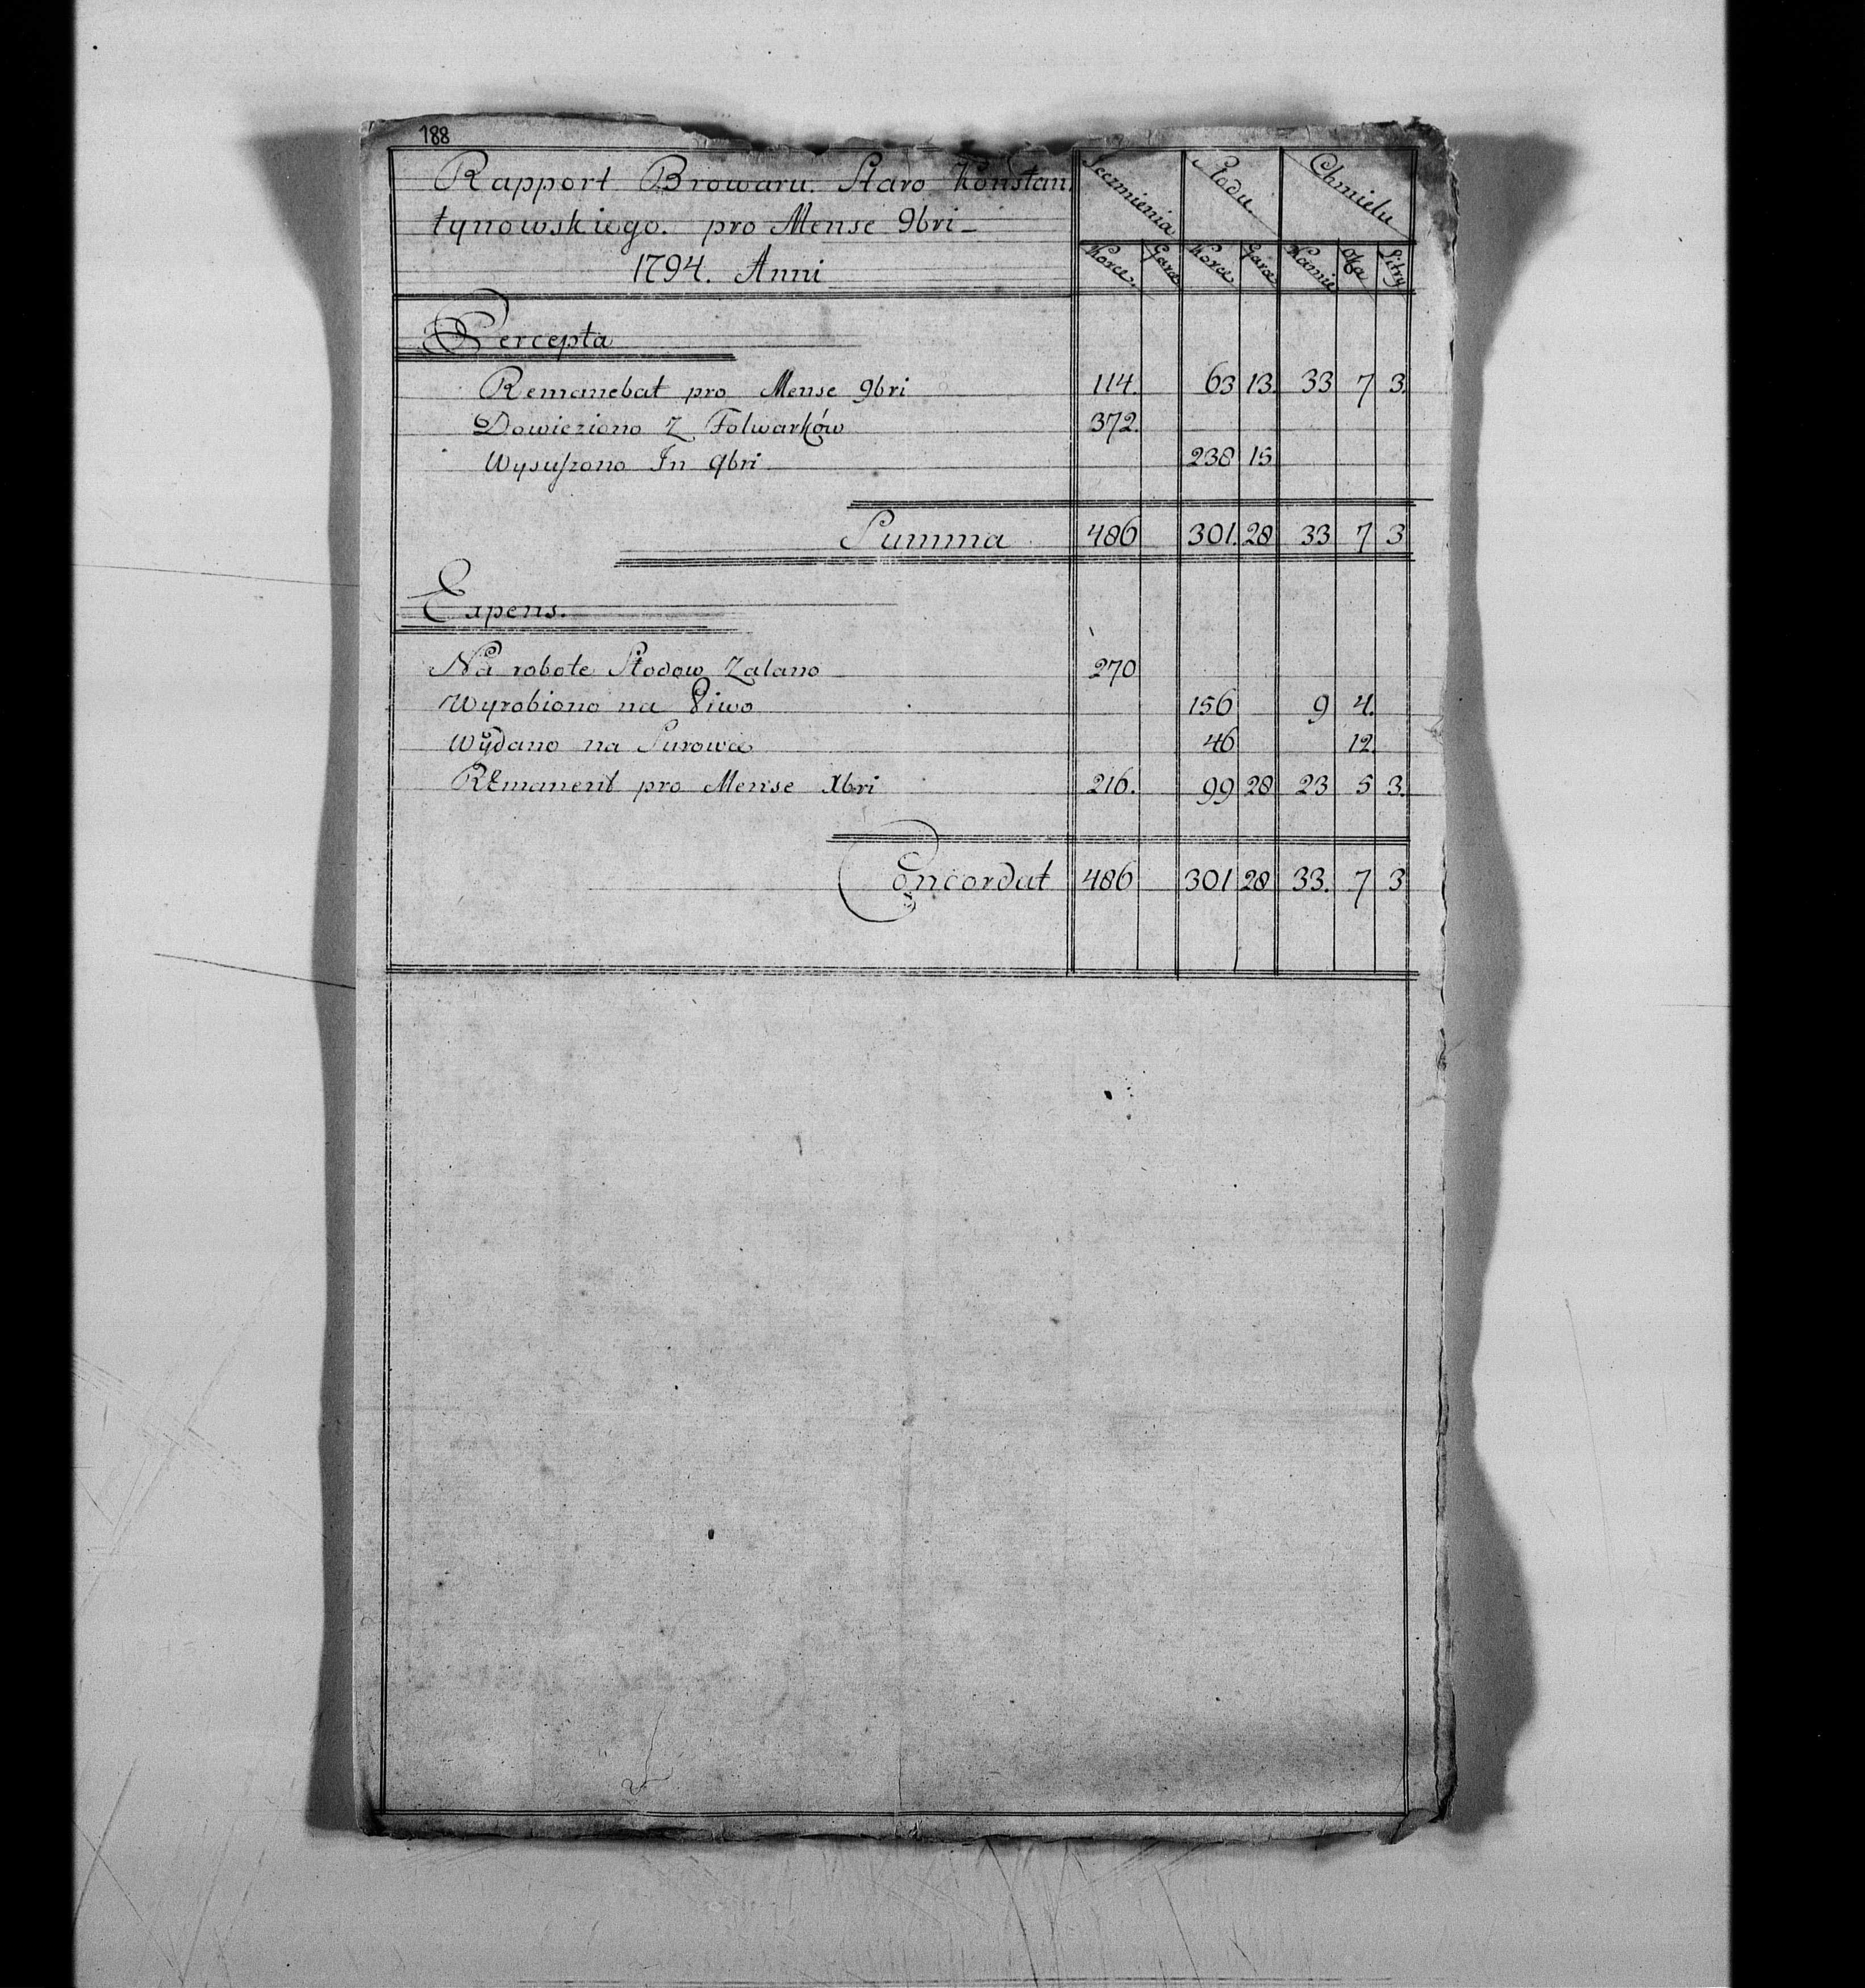 188
Rapport Browaru Staro Konstan
tynowskiego. pro Mense 9bri
1794. Anni
Jeczmienia Słodu Chmielu
Korce Garce Korce Garce Kamie Oka Litry
Percepta
Remanebat pro Mense 9bri 114. 63 13. 33 7 3.
Dowieziono Z Folwarków 372.
Wysuszono In 9bri 238 15
Summa 486 301. 28 33 7 3
Expens.
Na robote Słodow Zalano 270
Wyrobiono na Piwo 156 9 4.
Wydano na Surowce 46 12.
REmanent pro Mense Xbri 216. 99 28 23 5 3.
Concordat 486 301 28 33. 7 3